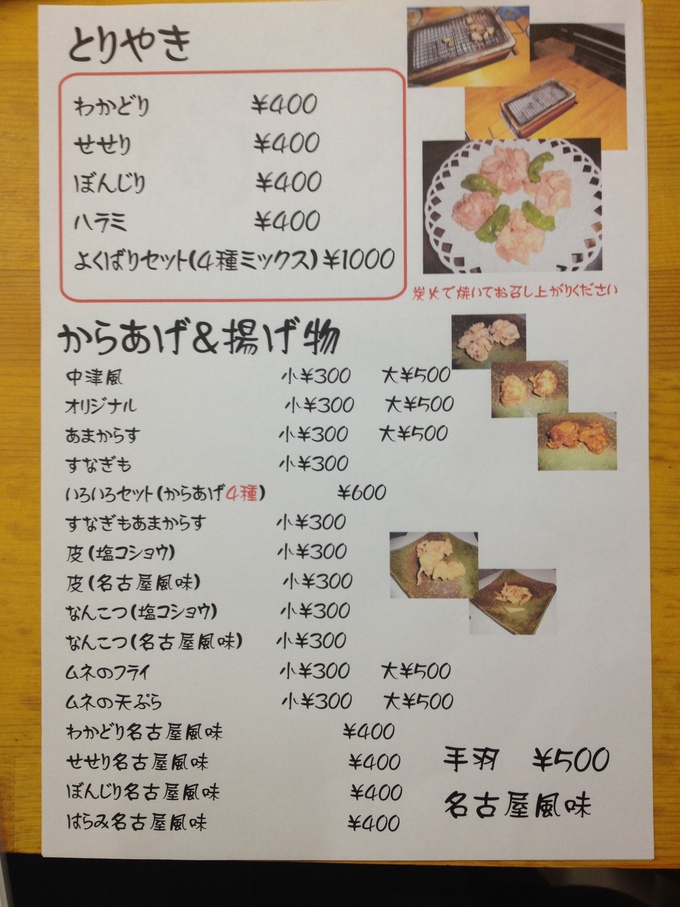 とりやき
わかどり ¥400
せせり ¥400
ぼんじり ¥400
ハラミ ¥400
よくばりセット(4種ミックス) ¥1000
炭火で焼いてお召し上がりください
からあげ&揚げ物
中津風 小¥300 大¥500
オリジナル 小¥300 大¥500
あまからす 小¥300 大¥500
すなぎも 小¥300
いろいろセット(からあげ4種) ¥600
すなぎもあまからす 小¥300
皮(塩コショウ) 小¥300
皮(名古屋風味) 小¥300
なんこつ(塩コショウ) 小¥300
なんこつ(名古屋風味) 小¥300
ムネのフライ 小¥300 大¥500
ムネの天ぷら 小¥300 大¥500
わかどり名古屋風味 ¥400
せせり名古屋風味 ¥400
ぼんじり名古屋風味 ¥400
はらみ名古屋風味 ¥400
手羽 ¥500
名古屋風味